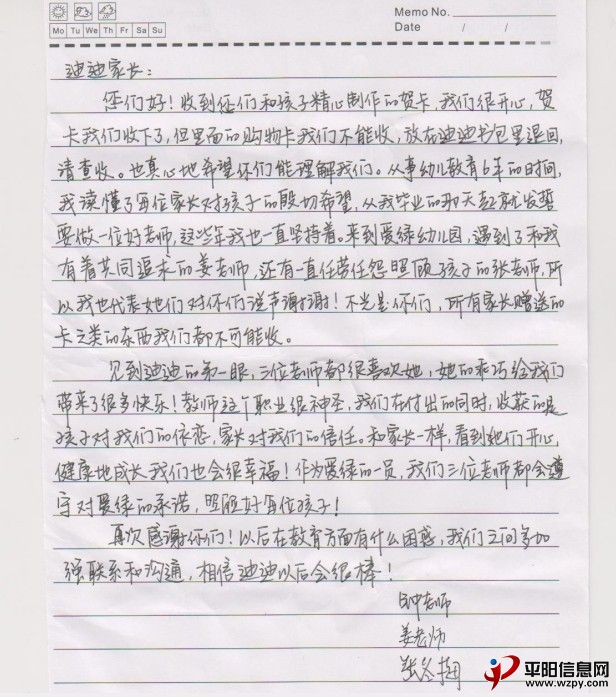 Memo No.
Mo Tu We Th Fr Sa Su
Date / /
迪迪家长：
您们好！收到您们和孩子精心制作的贺卡，我们很开心，贺
卡我们收下了，但里面的购物卡我们不能收，放在迪迪书包里退回，
请查收。也真心地希望你们能理解我们。从事幼儿教育6年的时间，
我读懂了每位家长对孩子的殷切希望，从我毕业的那天起就发誓
要做一位好老师，这些年我也一直坚持着。来到爱绿幼儿园，遇到了和我
有着共同追求的姜老师，还有一直任劳任怨照顾孩子的张老师，所
以我也代表她们对你们说声谢谢！不光是你们，所有家长赠送的
卡之类的东西我们都不可能收。
见到迪迪的第一眼，三位老师都很喜欢她，她的乖巧给我们
带来了很多快乐！教师这个职业很神圣，我们在付出的同时，收获的是
孩子对我们的依恋，家长对我们的信任。和家长一样，看到她们开心，
健康地成长我们也会很幸福！作为爱绿的一员，我们三位老师都会遵
守对爱绿的承诺，照顾好每位孩子！
再次感谢你们！以后在教育方面有什么困惑，我们之间多加
强联系和沟通，相信迪迪以后会很棒！
钟老师
姜老师
张冬梅
平阳信息网
www.wzpy.com